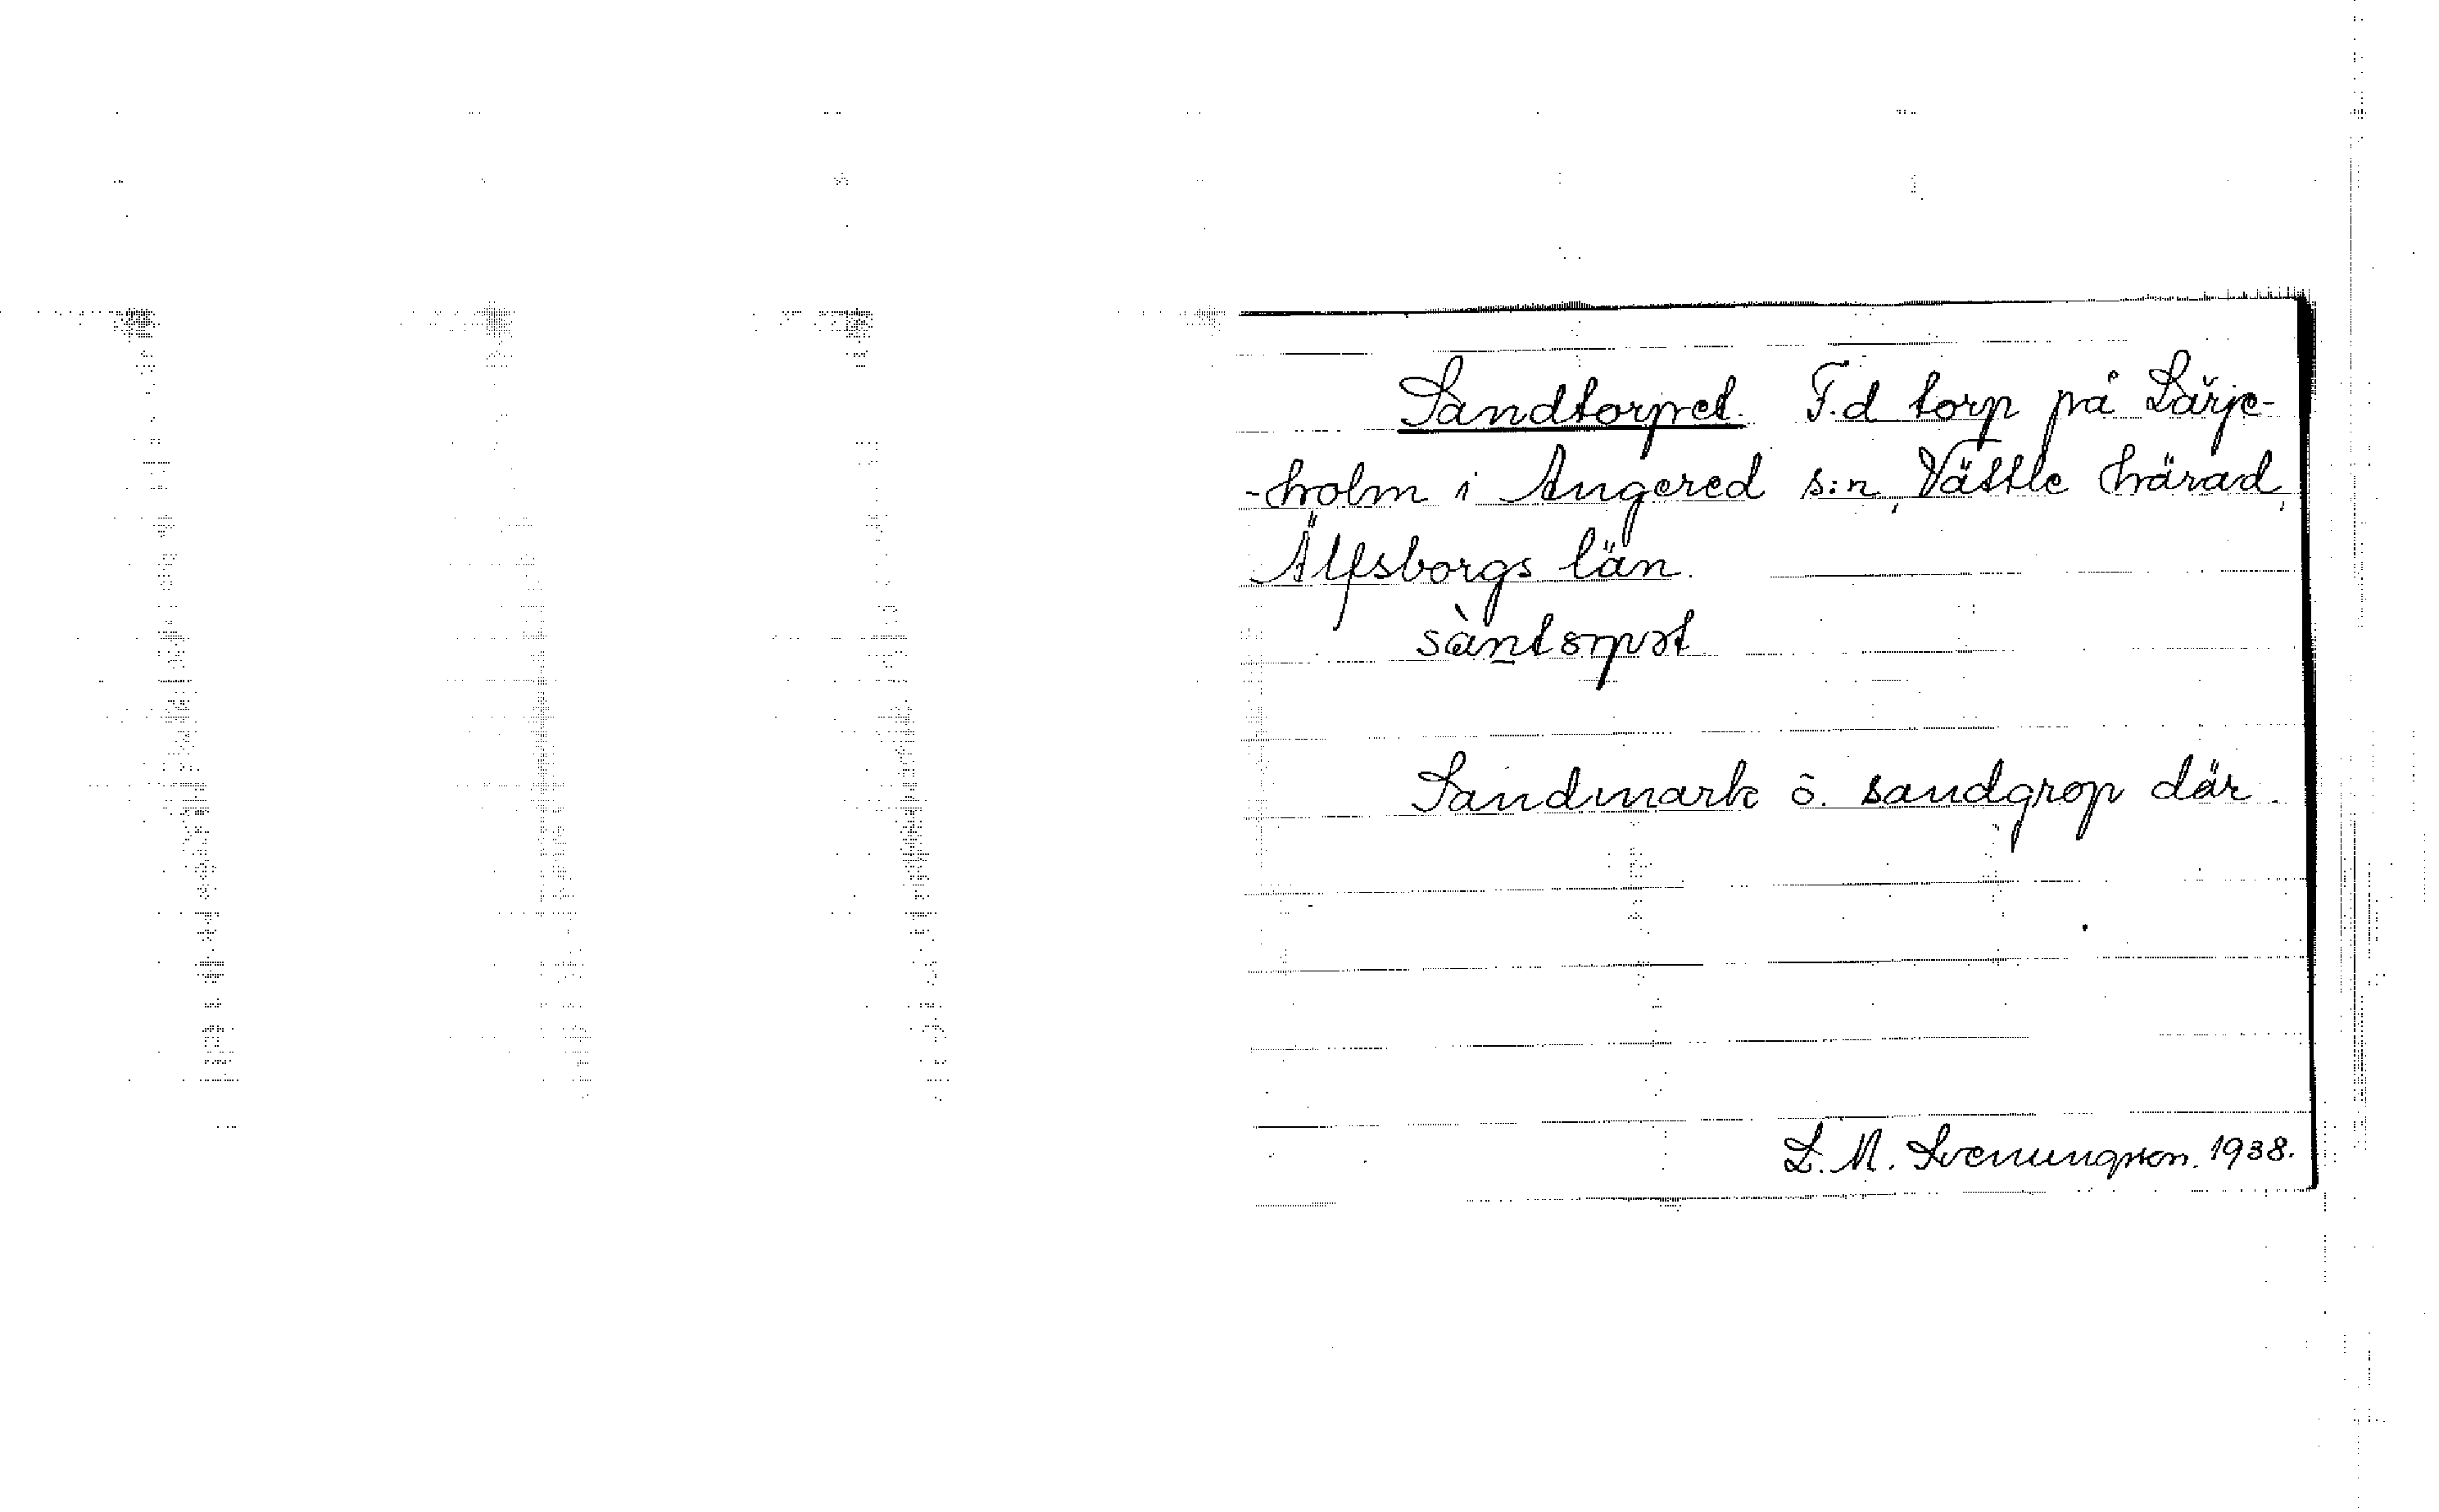 Sandtorpet. F.d torp på Lärje-
-holm i Angered s:n, Vättle härad,
Älfsborgs län.
sàntorpət
Sandmark o. sandgrop där.
L. M. Svenungsson. 1938.